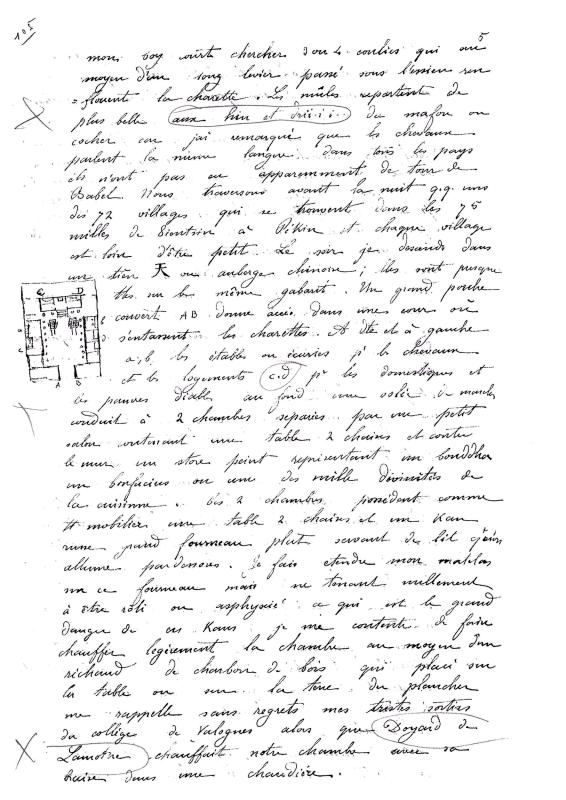 105
5
mon boy court chercher 3 ou 4 coulies qui au
moyen d'un long levier passé sous l'essieu ren
=flouent la charette. Les mûles repartent de
plus belle (aux hin et driii...) du mafou ou
cocher car j'ai remarqué que les chevaux
parlent la même langue dans tous les pays
ils n'ont pas eu apparemment de tour de
Babel. Nous traversons avant la nuit q.q. uns
des 72 villages qui se trouvent dans les 75
milles de Tientsin à Pékin et chaque village
est loin d'être petit. Le soir je descends dans
un tien 天 ou auberge chinoise; elles sont presque
ttes sur le même gabarit. Un grand porche
couvert AB donne accès dans une cour où
s'entassent les charettes. A dte et à gauche
a, b, les étables ou écuries pr les chevaux
et les logements (c.d) pr les domestiques et
les pauvres diables au fond une volée de marches
conduit à 2 chambres separées par un petit
salon contenant une table 2 chaises et contre
le mur un store peint représentant un bouddha
un confucius ou une des mille divinités de
la cuisine. Les 2 chambres possèdent comme
tt mobilier une table 2 chaises et un Kan
grand fourneau plat servant de lit qu'on
allume par dessous. Je fais étendre mon matelas
sur ce fourneau mais ne tenant nullement
à être rôti ou asphyxié ce qui est le grand
danger de ces Kans je me contente de faire
chauffer légèrement la chambre au moyen d'un
richaud de charbon de bois qui placé sur
la table ou sur la terre du plancher
me rappelle sans regrets mes tristes sorties
du collège de Valognes alors que (Doyard de
Lamotte) chauffait notre chambre avec sa
braise dans une chaudière.
C D
A B